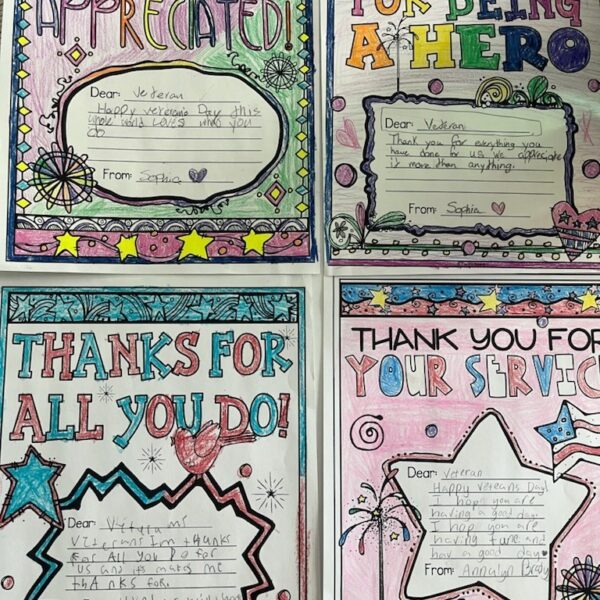 APPRECIATED!
Dear: Veteran
Happy veterans Day this
whole world loves what you
do
From: Sophia
FOR BEING
A HERO
Dear: Veteran
Thank you for everything you
have done for us we appreciate
it more than anything.
From: Sophia
THANKS FOR
ALL YOU DO!
Dear: Viterans
Viterans Im thanks
For All you Do for
us and its makes me
thAnks for.
THANK YOU FOR
YOUR SERVICE
Dear: Veteran
Happy Veterans Day!
I hope you are
having a good day.
I hop you are
having fune and
hav a good day
From: Annalyn Brady